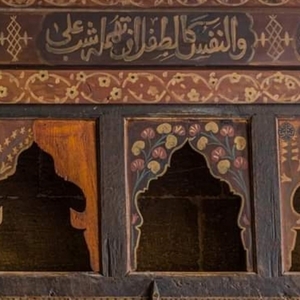 والنفس كالطفل إن تهمله شب على